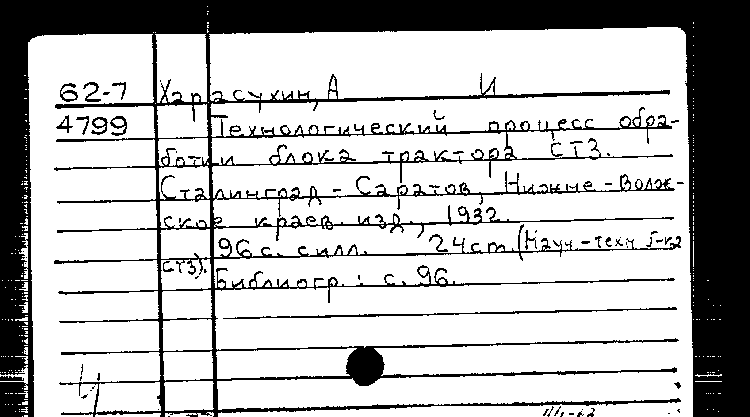 62-7 Харасухин, А И
4799 Технологический процесс обра-
ботки блока трактора СТЗ.
Сталинград - Саратов, Нижне-Волж-
ское краев. изд., 1932.
96 с. с илл. 24 см (Науч.-техн б-ка
СТЗ).
Библиогр.: с. 96.